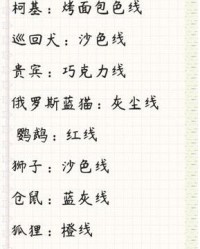 柯基：烤面包色线
巡回犬：沙色线
贵宾：巧克力线
俄罗斯蓝猫：灰尘线
鹦鹉：红线
狮子：沙色线
仓鼠：蓝灰线
狐狸：橙线